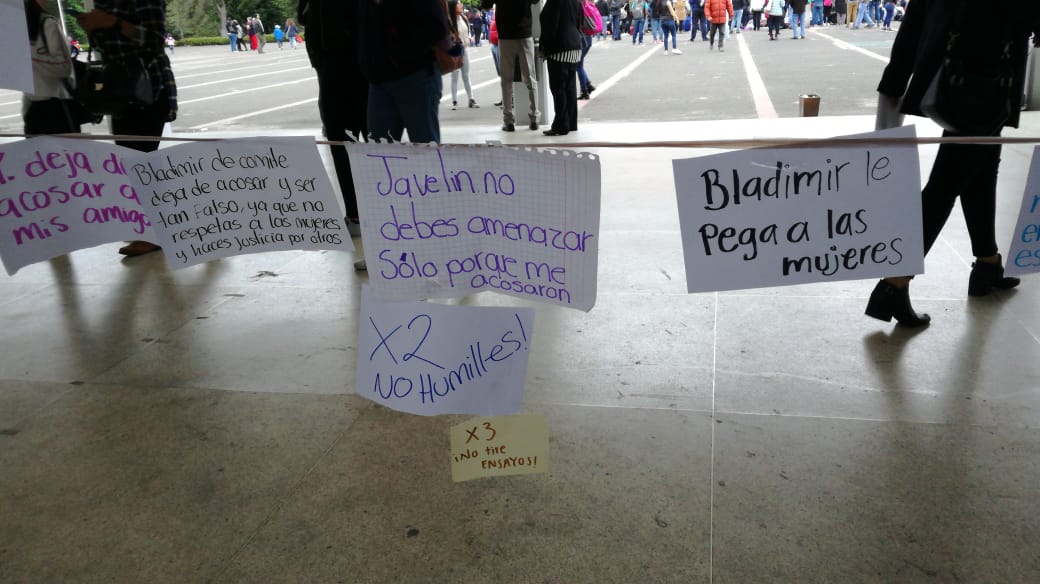 deja d
acosar a
mis amig
Bladimir de comite
deja de acosar y ser
tan falso, ya que no
respetas a las mujeres
y haces justicia por otros
Javelin no
debes amenazar
Sólo porque me
acosaron
X2
NO HUmilles!
X3
¡No tire
ENSAYOS!
Bladimir le
Pega a las
mujeres